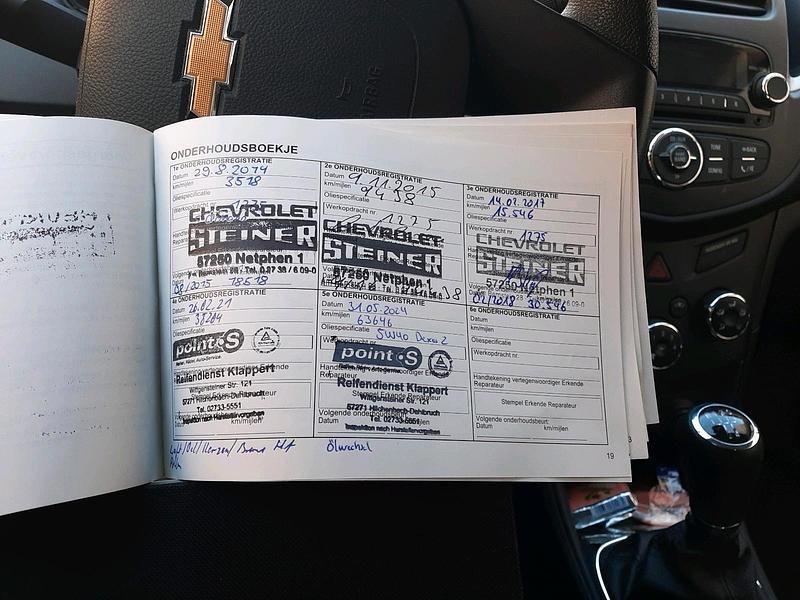 ONDERHOUDSBOEKJE
1e ONDERHOUDSREGISTRATIE
Datum 29.8.2014
km/mijlen 3518
Oliespecificatie
Werkopdracht nr 1275
CHEVROLET
STEINER
57250 Netphen 1
08/2015 18518
2e ONDERHOUDSREGISTRATIE
Datum 9.11.2015
km/mijlen 9438
Oliespecificatie
1275
CHEVROLET
STEINER
57250 Netphen 1
3e ONDERHOUDSREGISTRATIE
Datum 14.02.2017
km/mijlen 15.546
Oliespecificatie
Werkopdracht nr 1275
CHEVROLET
STEINER
57250 Netphen 1
02/2018 30.546
4e ONDERHOUDSREGISTRATIE
Datum 26.02.21
km/mijlen 38284
Oliespecificatie
point S
Reifen, Räder, Auto-Service.
Reifendienst Klappert
Wittgensteiner Str. 121
57271 Hilchenbach-Dahlbruch
Tel. 02733-5551
Inspektion nach Herstellervorgaben
5e ONDERHOUDSREGISTRATIE
Datum 31.05.2024
km/mijlen 63646
Oliespecificatie 5W40 Dexos 2
point S
Reifendienst Klappert
Wittgensteiner Str. 121
57271 Hilchenbach-Dahlbruch
Tel. 02733-5551
Volgende onderhoudsbeurt:
Inspektion nach Herstellervorgaben
6e ONDERHOUDSREGISTRATIE
Datum
km/mijlen
Oliespecificatie
Werkopdracht nr
Handtekening vertegenwoordiger Erkende
Reparateur
Stempel Erkende Reparateur
Volgende onderhoudsbeurt:
Datum km/mijlen
Ölwechsel
19
AIRBAG
TONE
BACK
CONFIG